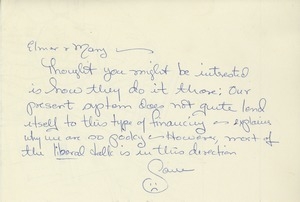 Elmer & Mary
Thought you might be intrested
is how they do it there: Our
present system does not quite lend
itself to this type of financing & explains
why we are so pooky. However, most of
the liberal talk is in this direction